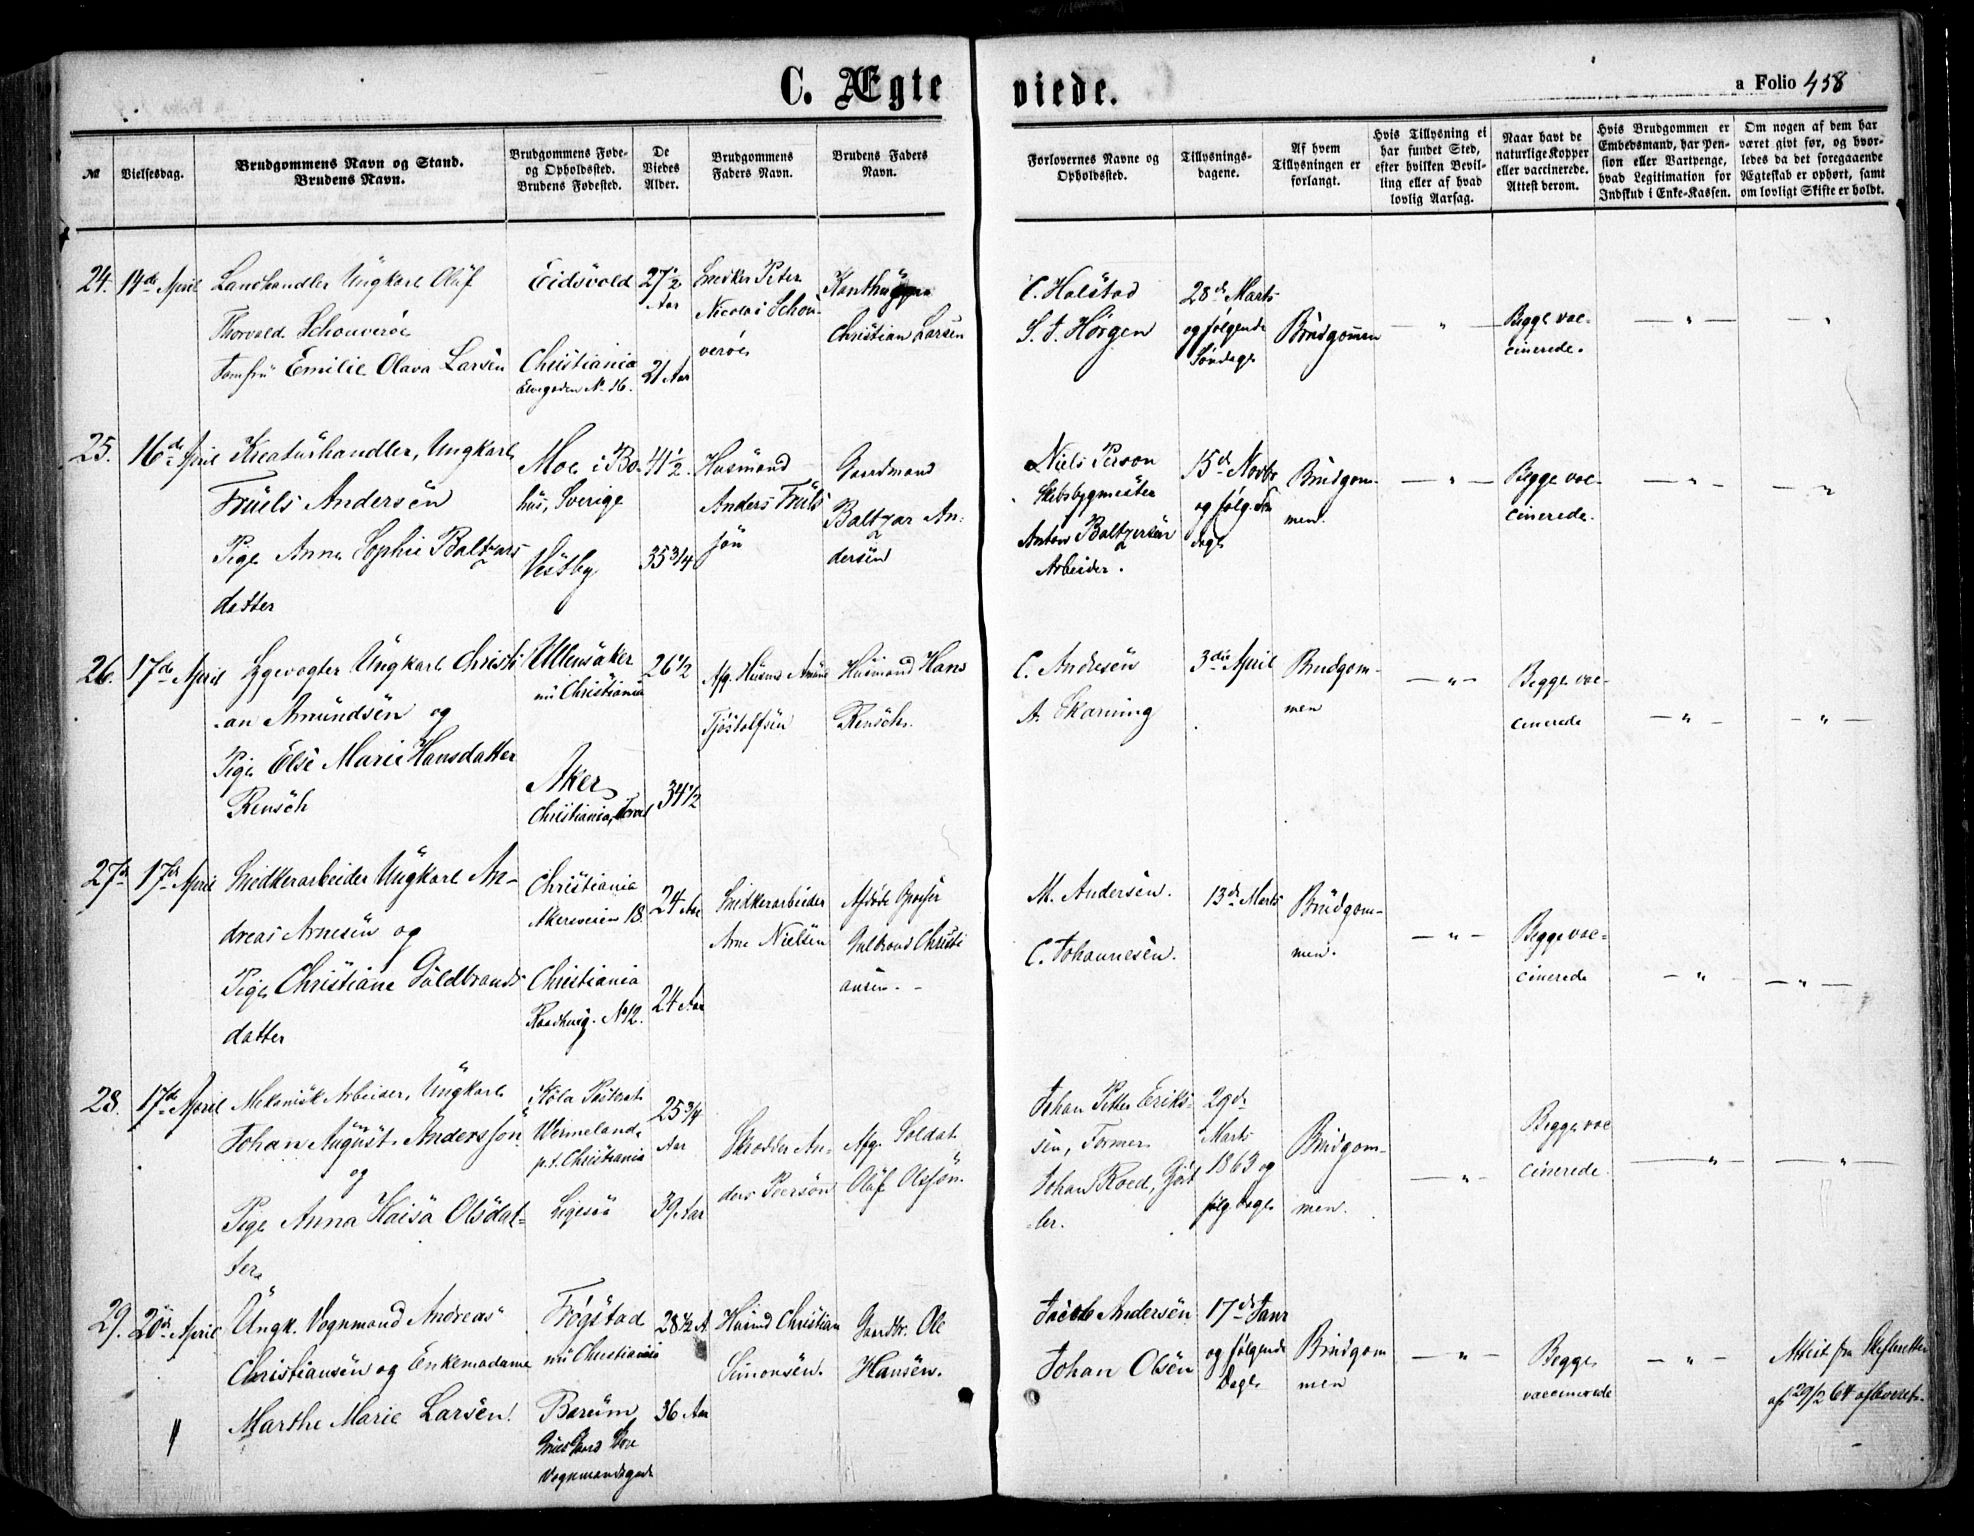 C. Ægte viede.
a Folio 458
№
Vielsesdag.
Brudgommens Navn og Stand.
Brudens Navn.
Brudgommens Føde-
og Opholdssted.
Brudens Fødested.
De
Viedes
Alder.
Brudgommens
Faders Navn.
Brudens Faders
Navn.
Forlovernes Navne og
Opholdssted.
Tillysnings-
dagene.
Af hvem
Tillysningen er
forlangt.
Hvis Tillysning ei
har fundet Sted,
efter hvilken Bevil-
ling eller af hvad
lovlig Aarsag.
Naar havt de
naturlige Kopper
eller vaccinerede.
Attest derom.
Hvis Brudgommen er
Embedsmand, har Pen-
sion eller Vartpenge,
hvad Legitimation for
Indskud i Enke-Kassen.
Om nogen af dem har
været gift før, og hvor-
ledes da det foregaaende
Ægteskab er ophørt, samt
om lovligt Skifte er holdt.
24. 14de April
Landhandler Ungkarl Oluf
Thorvald Schouverøe
Jomfru Emilie Olava Larsen
Eidsvold
Christiania
Elvegaden No 16.
27½
Aar
21 Aar
Snedker Peter
Nicolai Schou-
verøe
Christian Larsen
C. Halstad
S. J. Hørgen
28de Marts
og følgende
Søndage
Brudgommen
— " —
Begge vac-
cinerede.
— " —
— "
25. 16de April
Kreaturhandler, Ungkarl
Truels Andersen
Pige Anna Sophie Baltzars
datter
Moe i Bo-
hus, Sverige
Vestby
41½.
35¾
Husmand
Anders Truls
søn
Gaardmand
Baltzar An-
dersen
Niels Person
Skibsbygmester
Anton Baltzersen
Arbeider.
15de Novbr
og følg. Søn
dage
Brudgom-
men.
— " —
Begge vac-
cinerede.
— " —
— "
26. 17de April
Sygevogter Ungkarl Christi
-an Amundsen og
Pige Else Marie Hansdatter
Rensch
Ullensaker
nu Christiania
Aker
Christiania,
26½
34½
Afg. Husmd Amund
Tjøstolfsen
Husmand Hans
Rensch.
C. Andresen
A. Skarning
3die April
Brudgom-
men
— " —
Begge vac-
cinerede
— " —
— " —
27de 17de April
Snedkerarbeider Ungkarl An-
dreas Arnesen og
Pige Christiane Guldbrands
datter
Christiania
Akersveien 18.
Christiania
Raadhusg. No 12.
24 Aar
24 Aar
Snedkerarbeider
Arne Nielsen
Afdøde
Gulbrand Christi
ansen. -
M. Andersen.
C. Johannesen.
13de Marts
Brudgom-
men.
— " —
Begge vac-
cinerede
— "
— " —
28. 17de April
Mekanisk Arbeider, Ungkarl
Johan August Andersson
og
Pige Anna Kaisa Olsdat-
ter
Köla Pastorat
Wermeland
p.t. Christiania
Ligesaa
25¾
Aar
39 Aar
Skrædder An-
ders Peersøn
Afg. Soldat
Oluf Olsson.
Johan Petter Eriks-
sen, Former
Johan Roed, Gjørt
ler.
29de
Marts
1863 og
følg. Dage
Brudgom-
men.
— " —
Begge vac
cinerede.
— " —
— " —
29. 20de April
Ungk. Vognmand Andreas
Christiansen og Enkemadame
Marthe Marie Larsen.
Trøgstad
nu Christiania
Bærum
Vognmandsgade
28½ A
36 Aar
Husmd Christian
Simonsen.
Gaardbr. Ole
Hansen.
Jacob Andersen
Johan Olsen
17de Janr
og følgende
Dage
Brudgom
men
— " —
Begge
vaccinerede
— " —
Attest fra Skifteretten
af 29/2 64 afleveret.